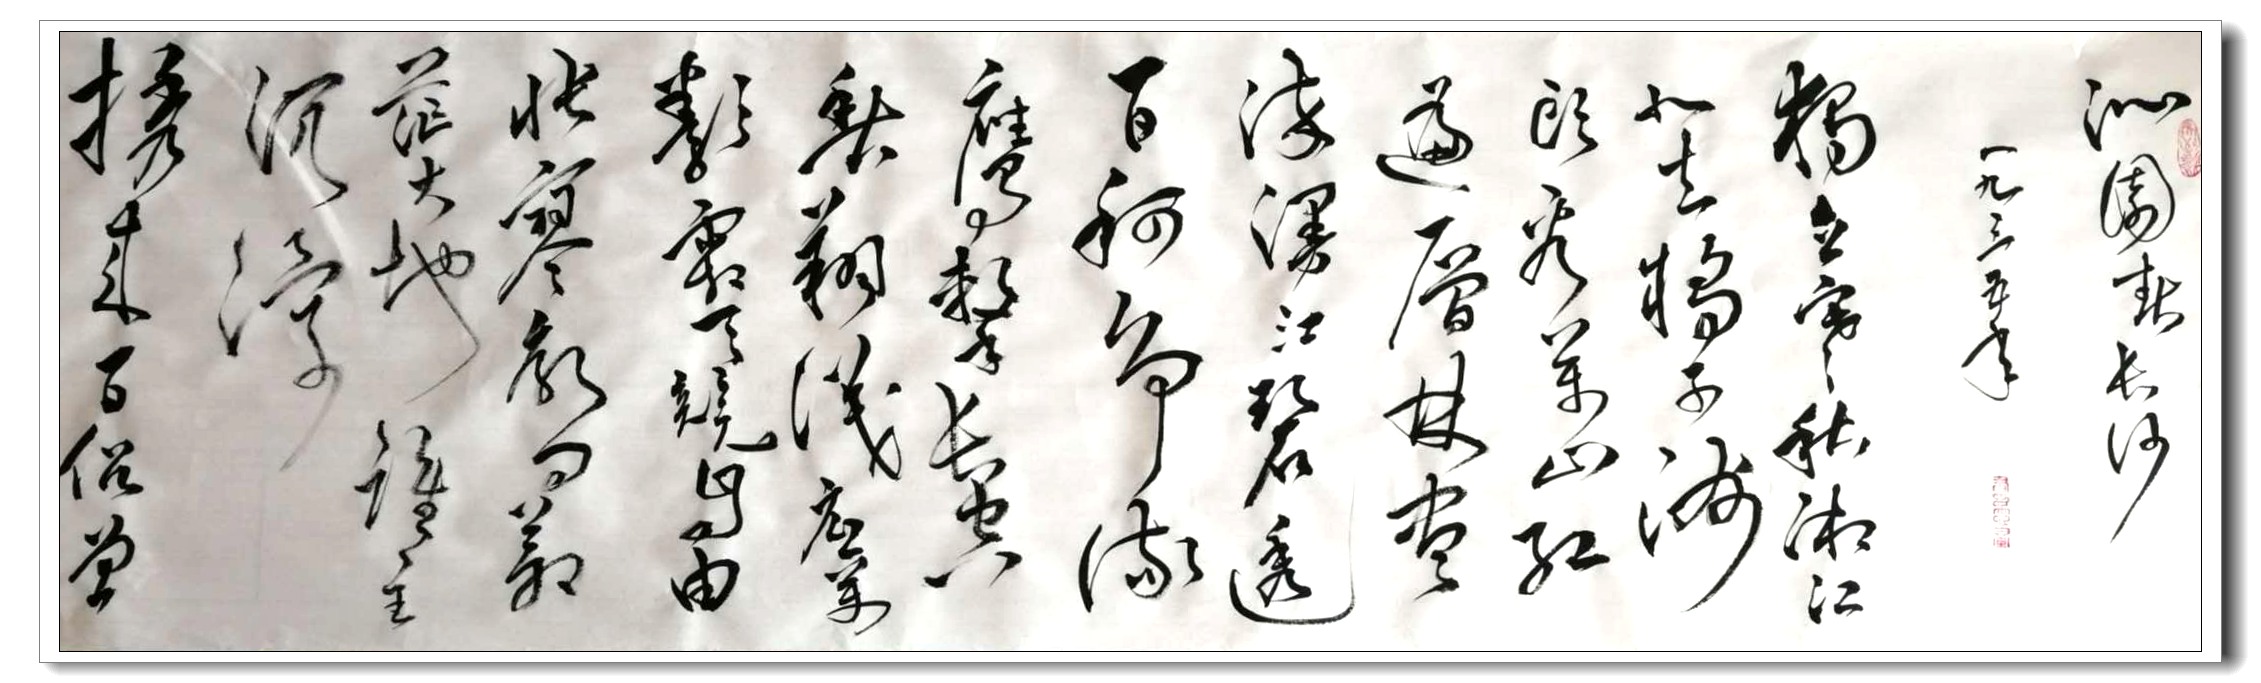 沁園春長沙
一九三五年
獨立寒秋湘江
北去橘子洲
頭看萬山紅
遍層林盡
染漫江碧透
百舸爭流
鷹擊長空
魚翔淺底萬
類霜天競自由
悵寥廓問蒼
茫大地誰主
沉浮
携來百侶曾